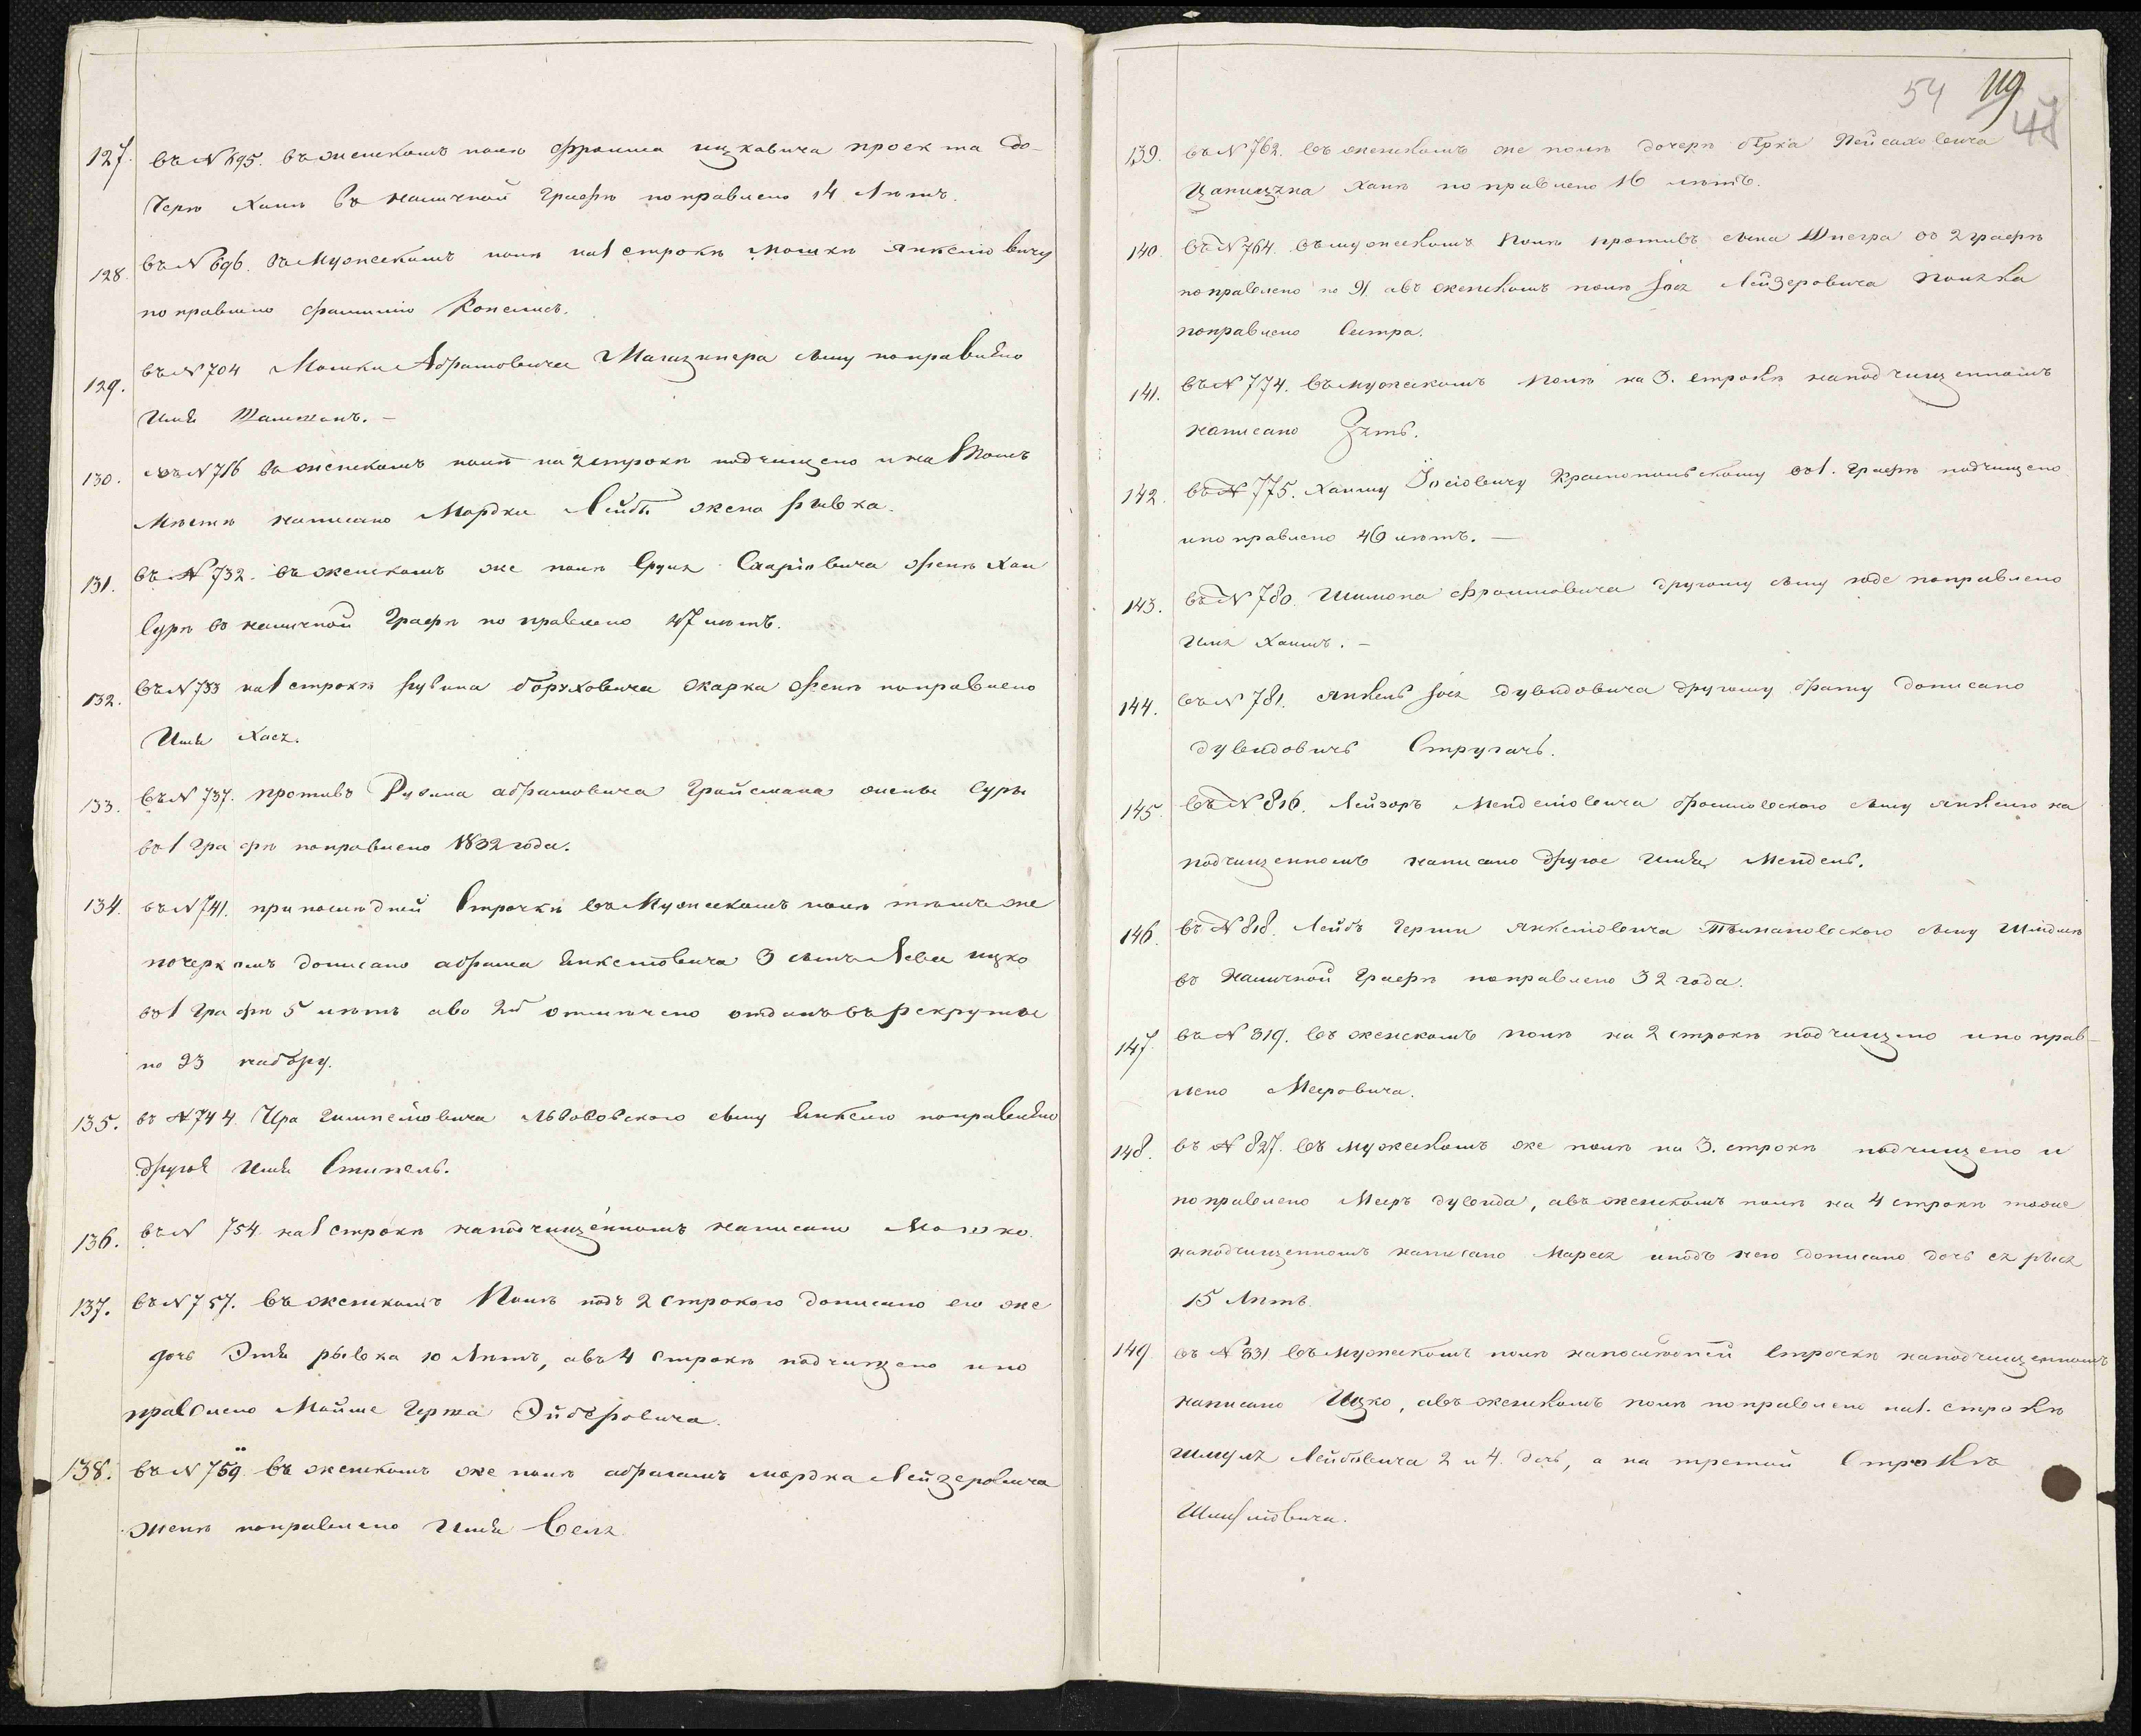 127. въ N 695. въ женскомъ полѣ Фроима ицковича проекта до-
черѣ Хаиѣ въ наличной графѣ поправлено 14 лѣтъ.
128. въ N 696. въ Мужескомъ полѣ на 1 строкѣ Мошкѣ Янкелювичу
поправлено фамилію Копелисъ.
129. въ N 704 Мошки Абрамовича Магазинера сыну поправлено
Имя .
130. въ N 716 въ женскомъ полѣ на 2 строкѣ подчищено и на томъ
Мѣстѣ написано Мордки Лейбы жена Рывка.
131. въ N 732. въ женскомъ же полѣ Сруля женѣ Хаи
Сурѣ въ наличной Графѣ поправлено 47 лѣтъ.
132. въ N 733 на 1 строкѣ Рубина боруховича женѣ поправлено
Имя Хася.
133. въ N 737. противъ Рубина абрамовича Грайсмана жены Суры
въ 1 Графѣ поправлено 1832 года.
134. въ N 741. при послѣдней Строчкѣ въ Мужескомъ полѣ тѣмъ же
почеркомъ дописано абрама Янкелювича 3 сынъ Лева ицко
въ 1 Графѣ 5 лѣтъ а во 2й отмѣчено отданъ въ рекруты
по 23 набору.
135. въ N 744 Лвововского сыну Янкелю поправлено
другое Имя .
136. въ N 754. на 1 строкѣ на подчищенномъ написано Мошко.
137. въ N 757. въ женскомъ Полѣ подъ 2 строкою дописано его же
дочь Этя рывка 10 лѣтъ, а въ 4 строкѣ подчищено и по
правлено Мойше Герша .
138. въ N 759. въ женскомъ же полѣ абрагамъ мордка Лейзеровича
женѣ поправлено Имя Бейля
54 119 48
139. въ N 762. въ женскомъ же полѣ дочерѣ бѣрка Пейсаховича
Хаиѣ поправлено 16 лѣтъ.
140. въ N 764. въ мужескомъ полѣ противъ сына Шнегра во 2 графѣ
поправлено по 9/. а въ женскомъ полѣ Іося Лейзеровича
поправлено Сестра.
141. въ N 774. въ мужескомъ полѣ на 3. строкѣ на подчищенномъ
написано Зять.
142. въ N 775. Хаиму Іосіовичу Краснопольскому въ 1. графѣ подчищено
и поправлено 46 лѣтъ. —
143. въ N 780. Шимона Фроимовича другому сыну поправлено
Имя Хаимъ. —
144. въ N 781. Янкель Іося Дувидовича другому брату дописано
дувидовичъ Стругачъ.
145. въ N 816. Лейзоръ Менделювича сыну Янкелю на
подчищенномъ написано другое Имя Мендель.
146. въ N 818. Лейбъ Герши Янкелювича сыну
въ Наличной Графѣ поправлено 32 года.
147. въ N 819. въ женскомъ полѣ на 2 строкѣ подчищено и поправ-
лено Меѣровича.
148. въ N 827. въ мужескомъ же полѣ на 3. строкѣ подчищено и
поправлено Меѣръ дувида, а въ женскомъ полѣ на 4 строкѣ тоже
на подчищенномъ написано Марея и подъ нею дописано дочь ея рыся
15 лѣтъ.
149. въ N 831 въ мужескомъ полѣ на послѣдней Строчкѣ на подчищенномъ
написано Ицко, а въ женскомъ полѣ поправлено на 1. строкѣ
Шмуля Лейбовича 2 и 4. дочь, а на третьей Строкѣ
Шмулювича.